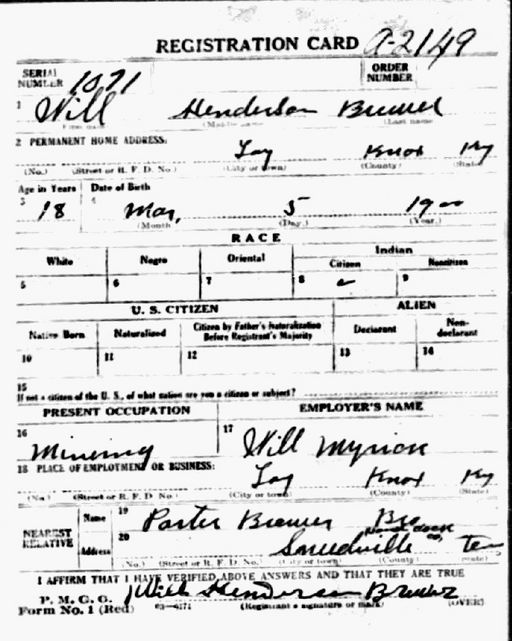 REGISTRATION CARD A-2149
SERIAL NUMBER 1071 ORDER NUMBER
1 Will Henderson Brewer
First name (Middle name) Last name
2 PERMANENT HOME ADDRESS:
Loy Knox Ky
(No.) (Street or R. F. D. No.) (City or town) (County) (State)
Age in Years Date of Birth
3 18 4 Mar, 5 1900
(Month (Day.) (Year.)
RACE
White Negro Oriental Indian
Citizen Noncitizen
5 6 7 8 9
U. S. CITIZEN ALIEN
Native Born Naturalized Citizen by Father's Naturalization Before Registrant's Majority Declarant Non-declarant
10 11 12 13 14
15
If not a citizen of the U. S., of what nation are you a citizen or subject?
PRESENT OCCUPATION EMPLOYER'S NAME
16 Mining 17 Will Myrick
18 PLACE OF EMPLOYMENT OR BUSINESS:
Loy Knox Ky
(No.) (Street or R. F. D. No.) (City or town) (County) (State)
NEAREST RELATIVE
Name 19 Porter Brewer Bro
Address 20 Sneedville Hancock Co, Ten
(No.) (Street or R. F. D. No.) (City or town) (County) (State)
I AFFIRM THAT I HAVE VERIFIED ABOVE ANSWERS AND THAT THEY ARE TRUE
P. M. G. O. Will Henderson Brewer
Form No. 1 (Red) 03-6171 (Registrant's signature or mark) (OVER)